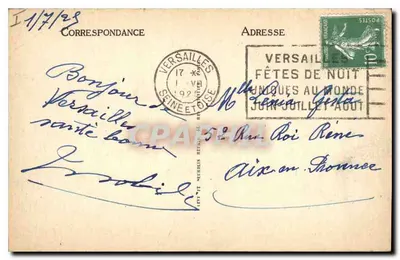 1/7/25
CORRESPONDANCE
ADRESSE
VERSAILLES
17
SEINE ET OISE
VERSAILLES
FÊTES DE NUIT
UNIQUES AU MONDE
JUIN-JUILLET-AOUT
POSTES
10
Bonjour de
Versailles
santé bonne
Mlle
52 Rue Roi René
Aix-en-Provence